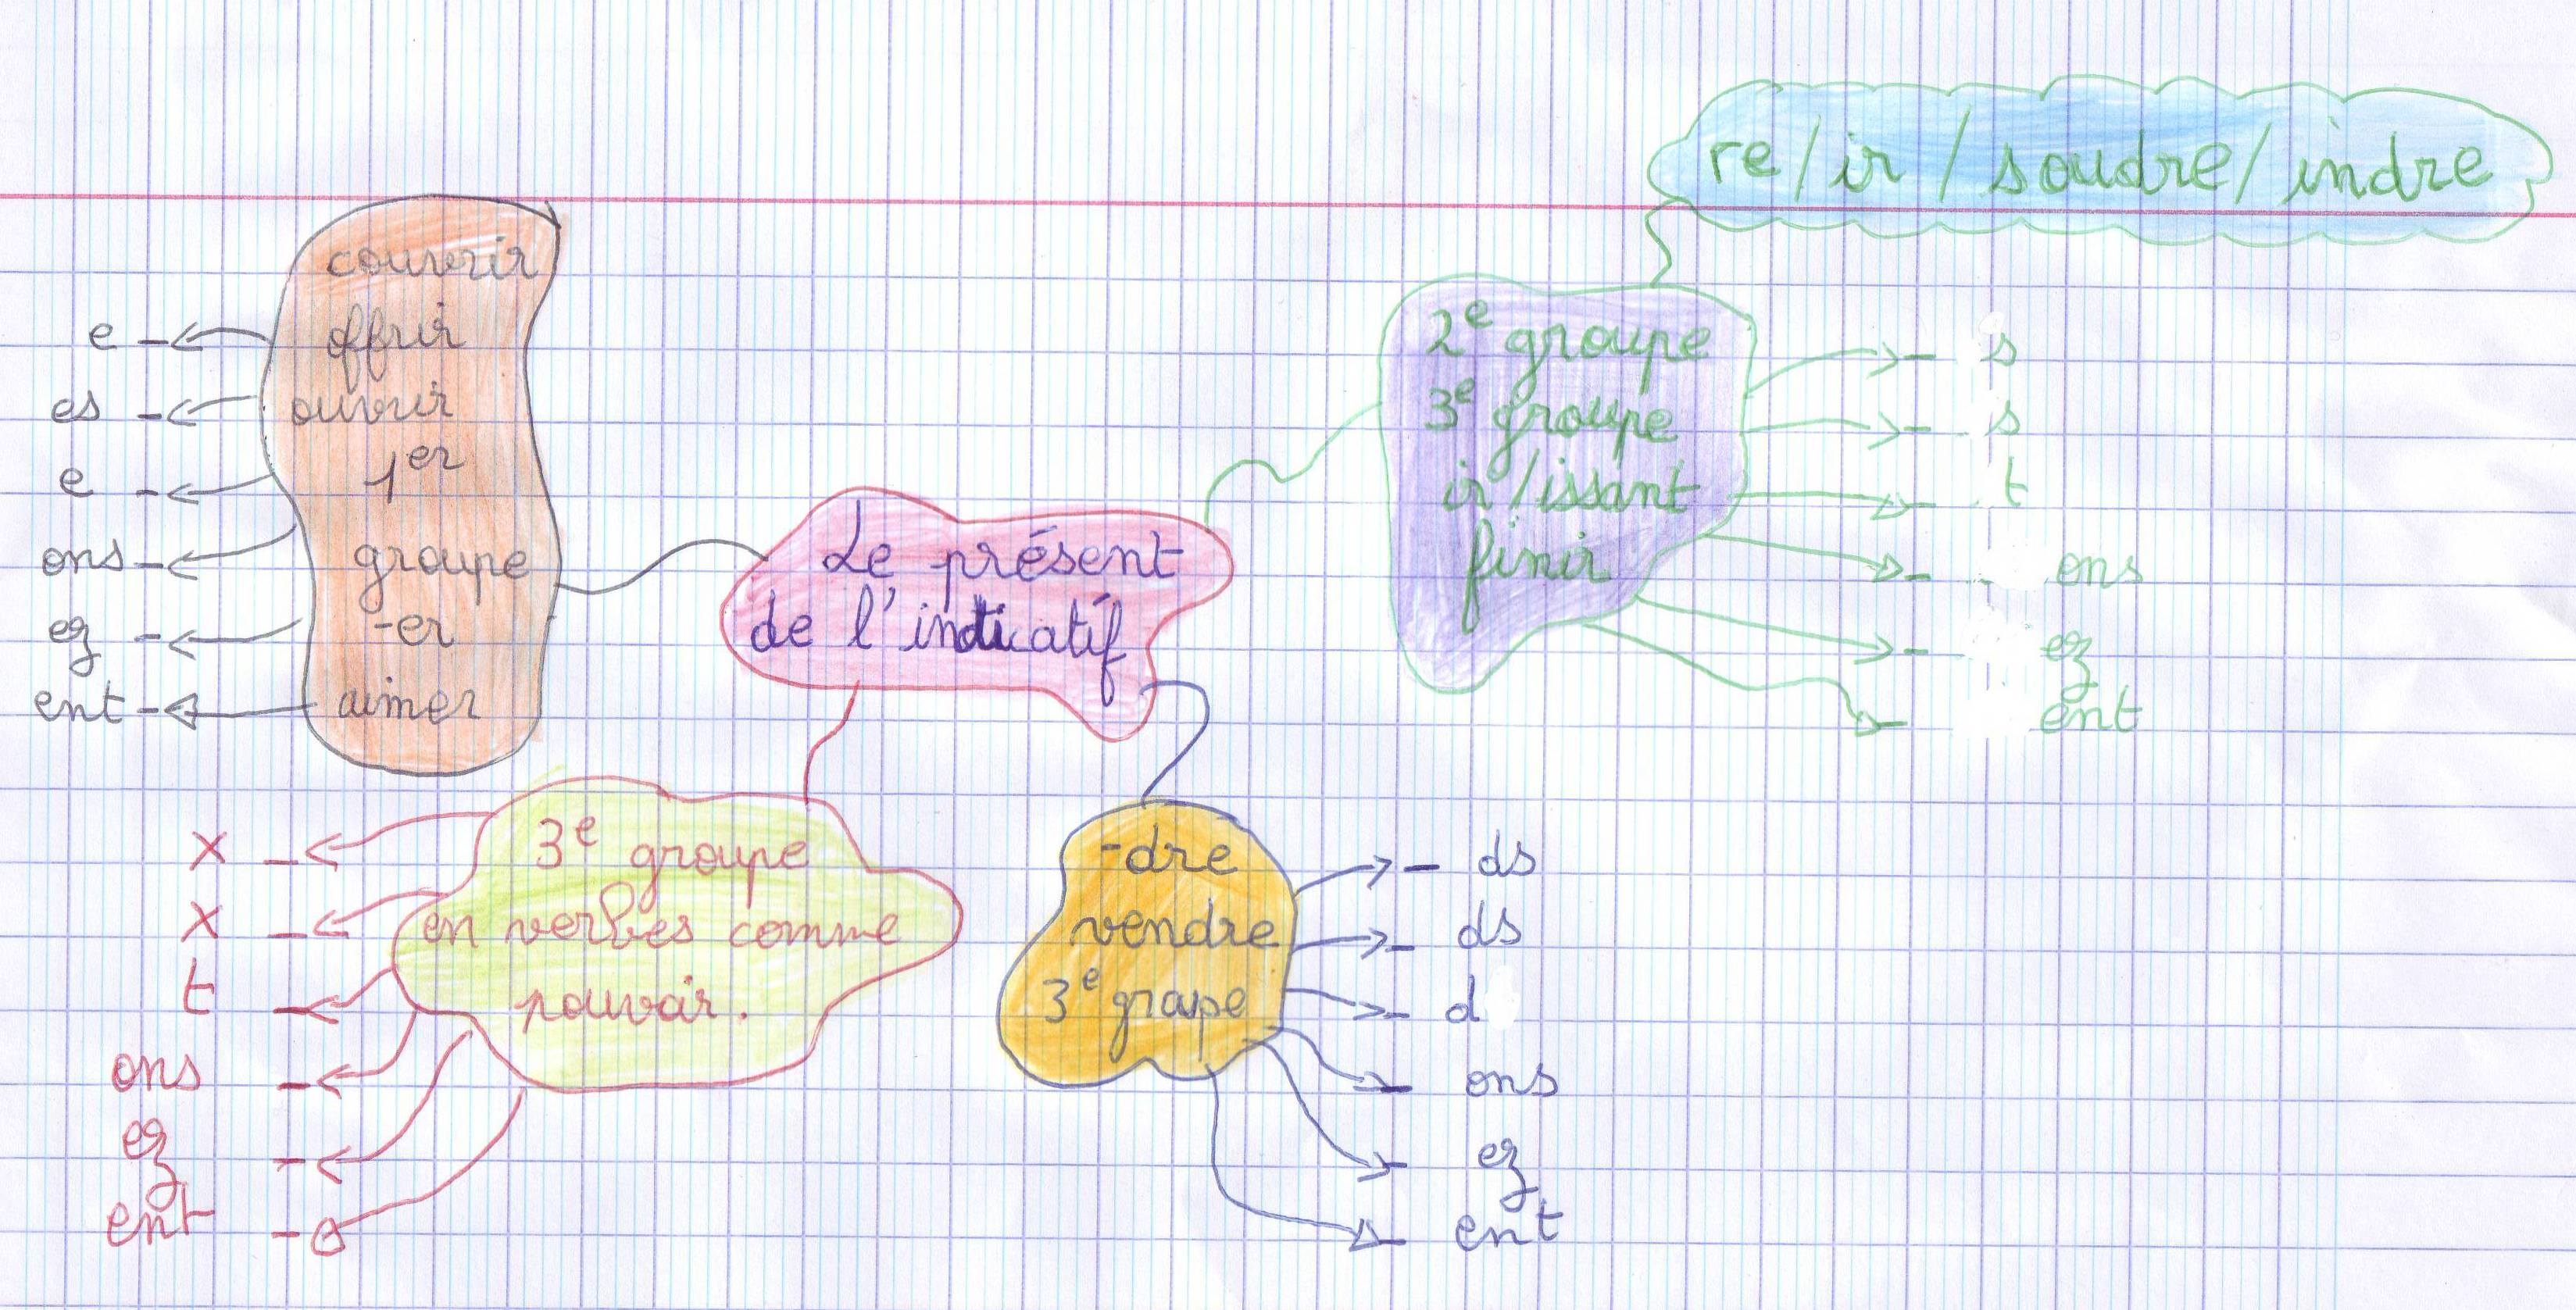 Le présent
de l'indicatif
couvrir
offrir
ouvrir
1er
groupe
-er
aimer
e -
es -
e -
ons -
ez -
ent -
re / ir / soudre / indre
2e groupe
3e groupe
ir / issant
finir
- s
- s
- t
- ons
- ez
- ent
3e groupe
en verbes comme
pouvoir.
x -
x -
t -
ons -
ez -
ent -
-dre
vendre
3e groupe
- ds
- ds
- d
- ons
- ez
- ent